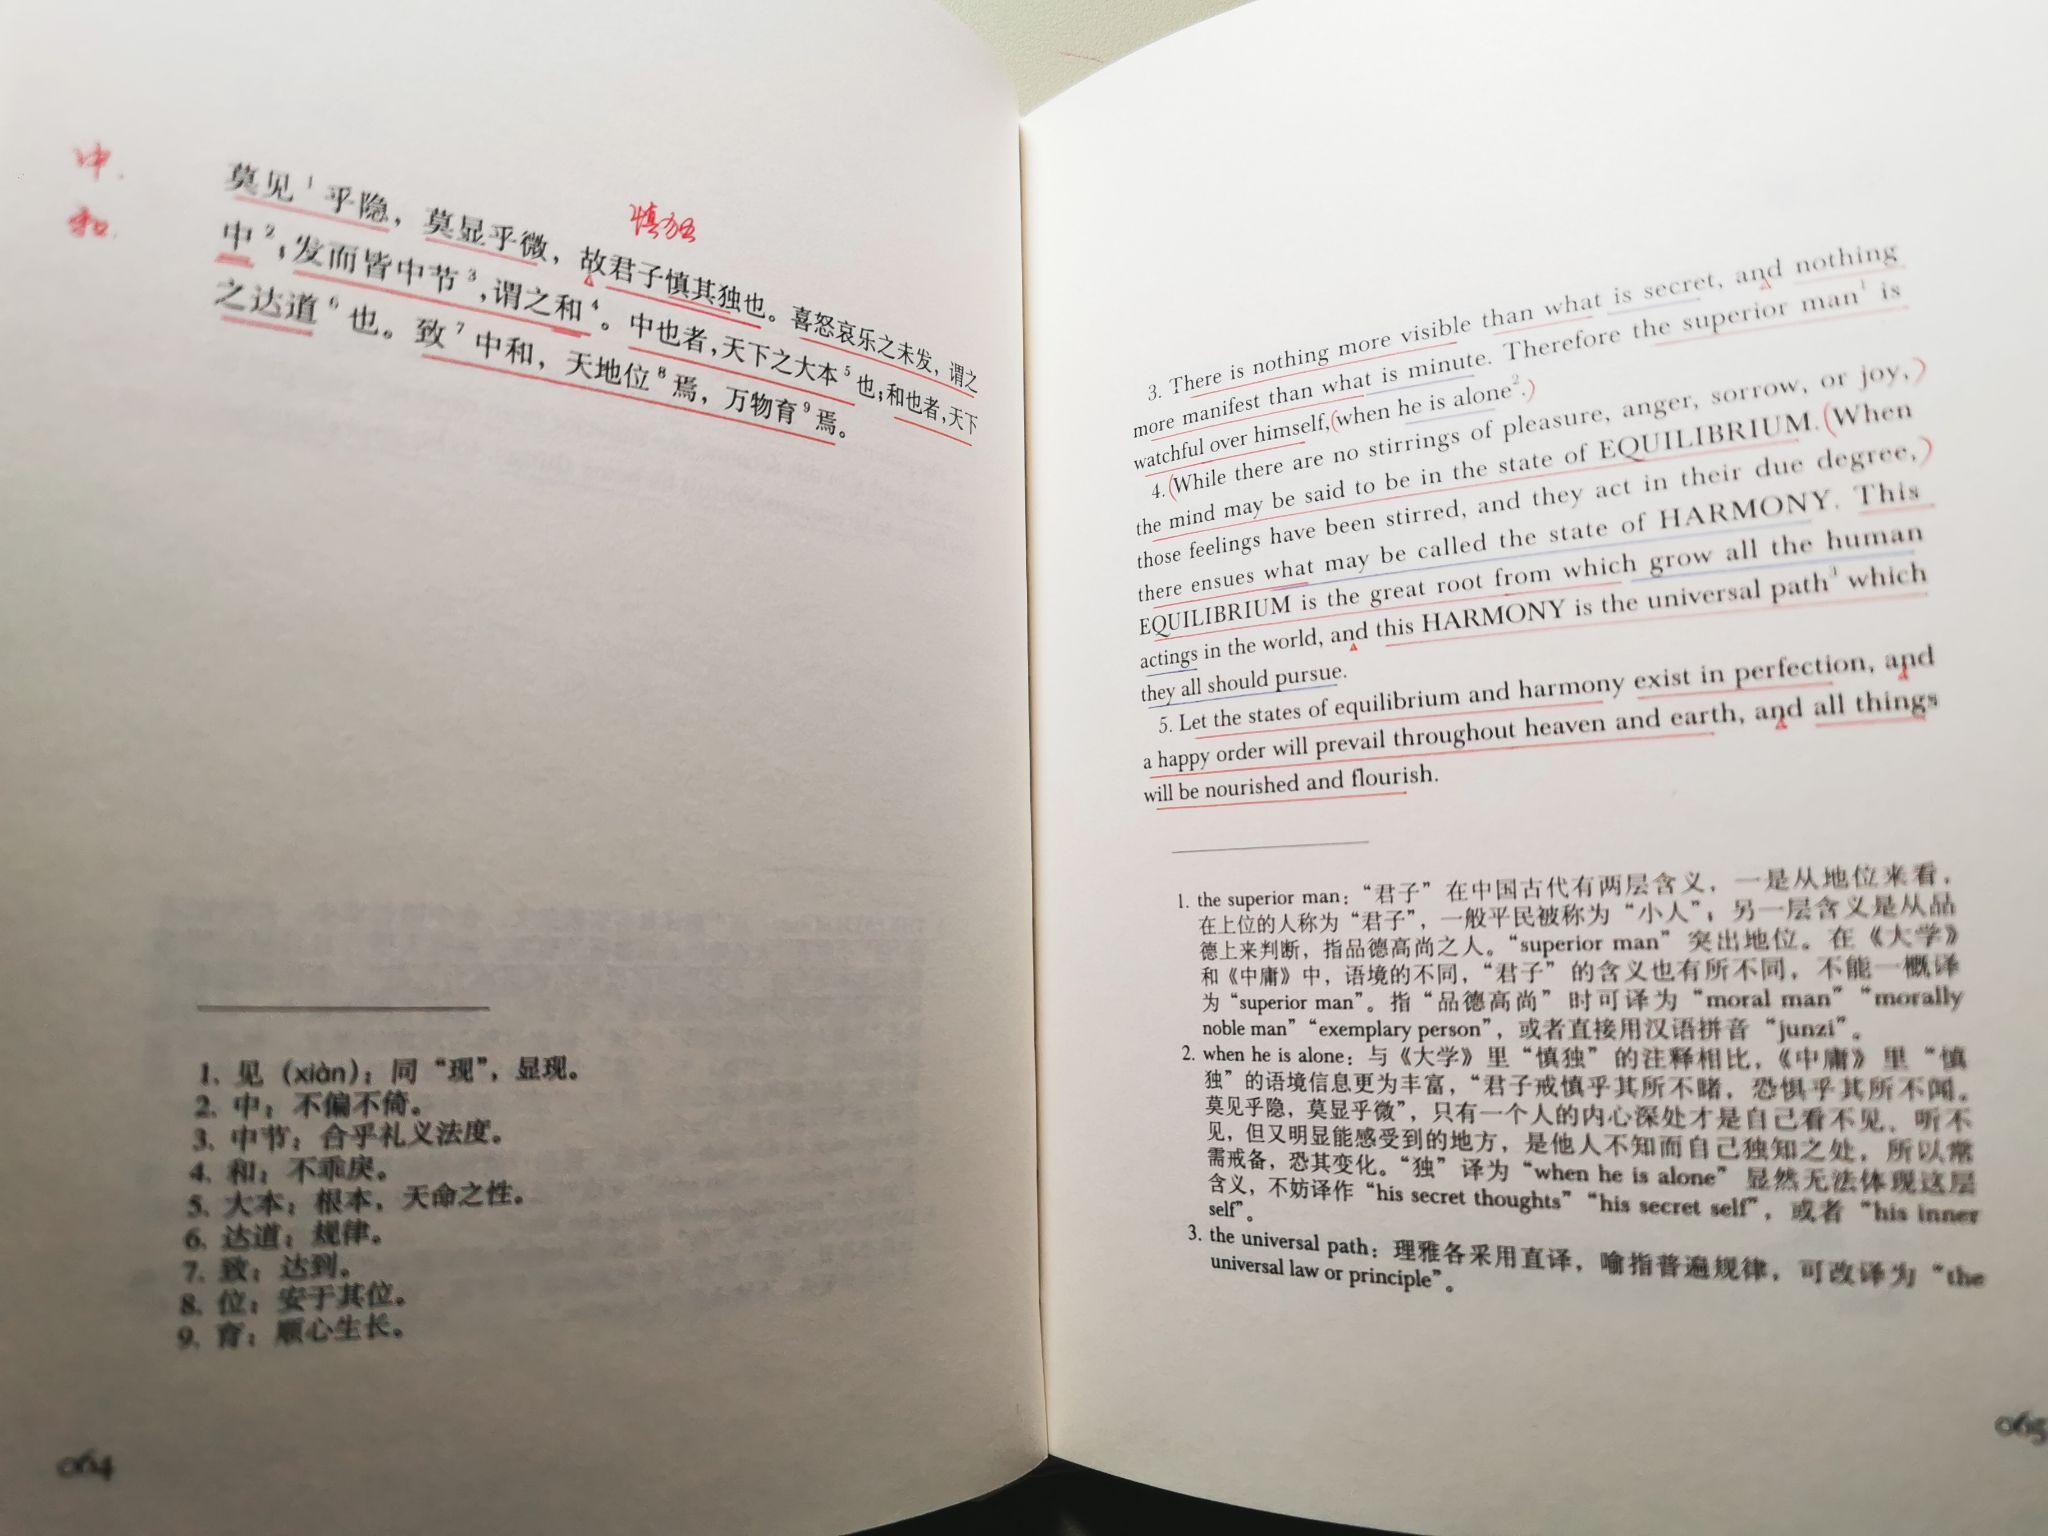 中.
和.
慎独
莫见¹乎隐，莫显乎微，故君子慎其独也。喜怒哀乐之未发，谓之
中²；发而皆中节³，谓之和⁴。中也者，天下之大本⁵也；和也者，天下
之达道⁶也。致⁷中和，天地位⁸焉，万物育⁹焉。
1. 见（xiàn）：同“现”，显现。
2. 中：不偏不倚。
3. 中节：合乎礼义法度。
4. 和：不乖戾。
5. 大本：根本，天命之性。
6. 达道：规律。
7. 致：达到。
8. 位：安于其位。
9. 育：顺心生长。
064
3. There is nothing more visible than what is secret, and nothing
more manifest than what is minute. Therefore the superior man¹ is
watchful over himself, (when he is alone².)
4. (While there are no stirrings of pleasure, anger, sorrow, or joy,)
the mind may be said to be in the state of EQUILIBRIUM. (When
those feelings have been stirred, and they act in their due degree,)
there ensues what may be called the state of HARMONY. This
EQUILIBRIUM is the great root from which grow all the human
actings in the world, and this HARMONY is the universal path³ which
they all should pursue.
5. Let the states of equilibrium and harmony exist in perfection, and
a happy order will prevail throughout heaven and earth, and all things
will be nourished and flourish.
1. the superior man：“君子”在中国古代有两层含义，一是从地位来看，
在上位的人称为“君子”，一般平民被称为“小人”；另一层含义是从品
德上来判断，指品德高尚之人。“superior man”突出地位。在《大学》
和《中庸》中，语境的不同，“君子”的含义也有所不同，不能一概译
为“superior man”。指“品德高尚”时可译为“moral man”“morally
noble man”“exemplary person”，或者直接用汉语拼音“junzi”。
2. when he is alone：与《大学》里“慎独”的注释相比，《中庸》里“慎
独”的语境信息更为丰富，“君子戒慎乎其所不睹，恐惧乎其所不闻。
莫见乎隐，莫显乎微”，只有一个人的内心深处才是自己看不见、听不
见，但又明显能感受到的地方，是他人不知而自己独知之处，所以常
需戒备，恐其变化。“独”译为“when he is alone”显然无法体现这层
含义，不妨译作“his secret thoughts”“his secret self”，或者“his inner
self”。
3. the universal path：理雅各采用直译，喻指普遍规律，可改译为“the
universal law or principle”。
065